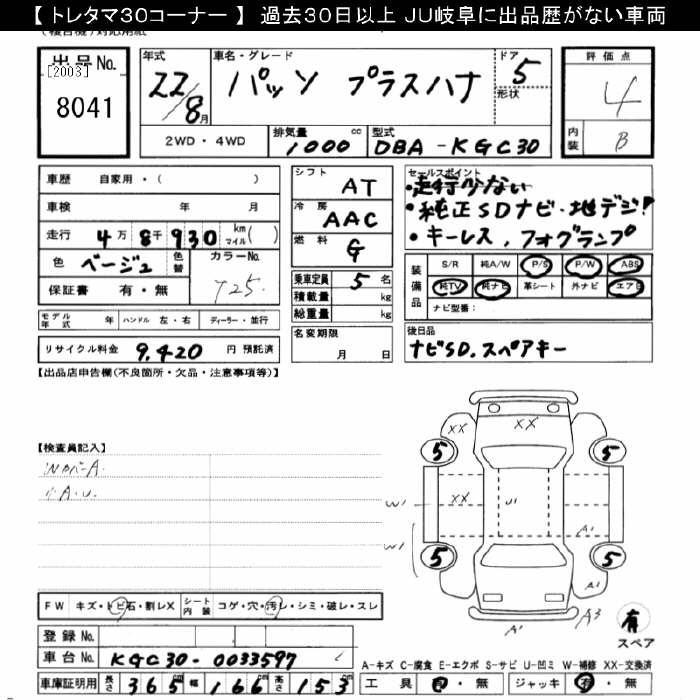 【 トレタマ30コーナー 】 過去30日以上 JU岐阜に出品歴がない車両
出品No.
[2003]
8041
年式
22/8月
車名・グレード
パッソ プラスハナ
ドア
5
形状
評価点
4
内装
B
2WD・4WD
排気量
1000 cc
型式
DBA-KGC30
車歴 自家用・( )
車検 年 月
走行 4万8千930 km マイル( )
色 ベージュ 色替 カラーNo. T25
保証書 有・無
モデル年式 年 ハンドル 左・右 ディーラー・並行
リサイクル料金 9,420 円 預託済
シフト AT
冷房 AAC
燃料 G
乗車定員 5 名
積載量 kg
総重量 kg
名変期限 月 日
セールスポイント
・走行少ない
・純正SDナビ・地デジ!
・キーレス、フォグランプ
装備品
S/R 純A/W P/S P/W ABS
純TV 純ナビ 革シート 外ナビ エアB
ナビ型番:
後日品
ナビSD.スペアキー
【出品店申告欄(不良箇所・欠品・注意事項等)】
【検査員記入】
XX XX
5 5
W1 XX U1
A1
W1
5 5
A1
A1 A3
有
スペア
FW キズ・トビ石・割レX シート内装 コゲ・穴・汚レ・シミ・破レ・スレ
登録No.
車台No. KGC30-0033597
車庫証明用 長さ 365cm 幅 166cm 高さ 153cm
A-キズ C-腐食 E-エクボ S-サビ U-凹ミ W-補修 XX-交換済
工具 有・無 ジャッキ 有・無